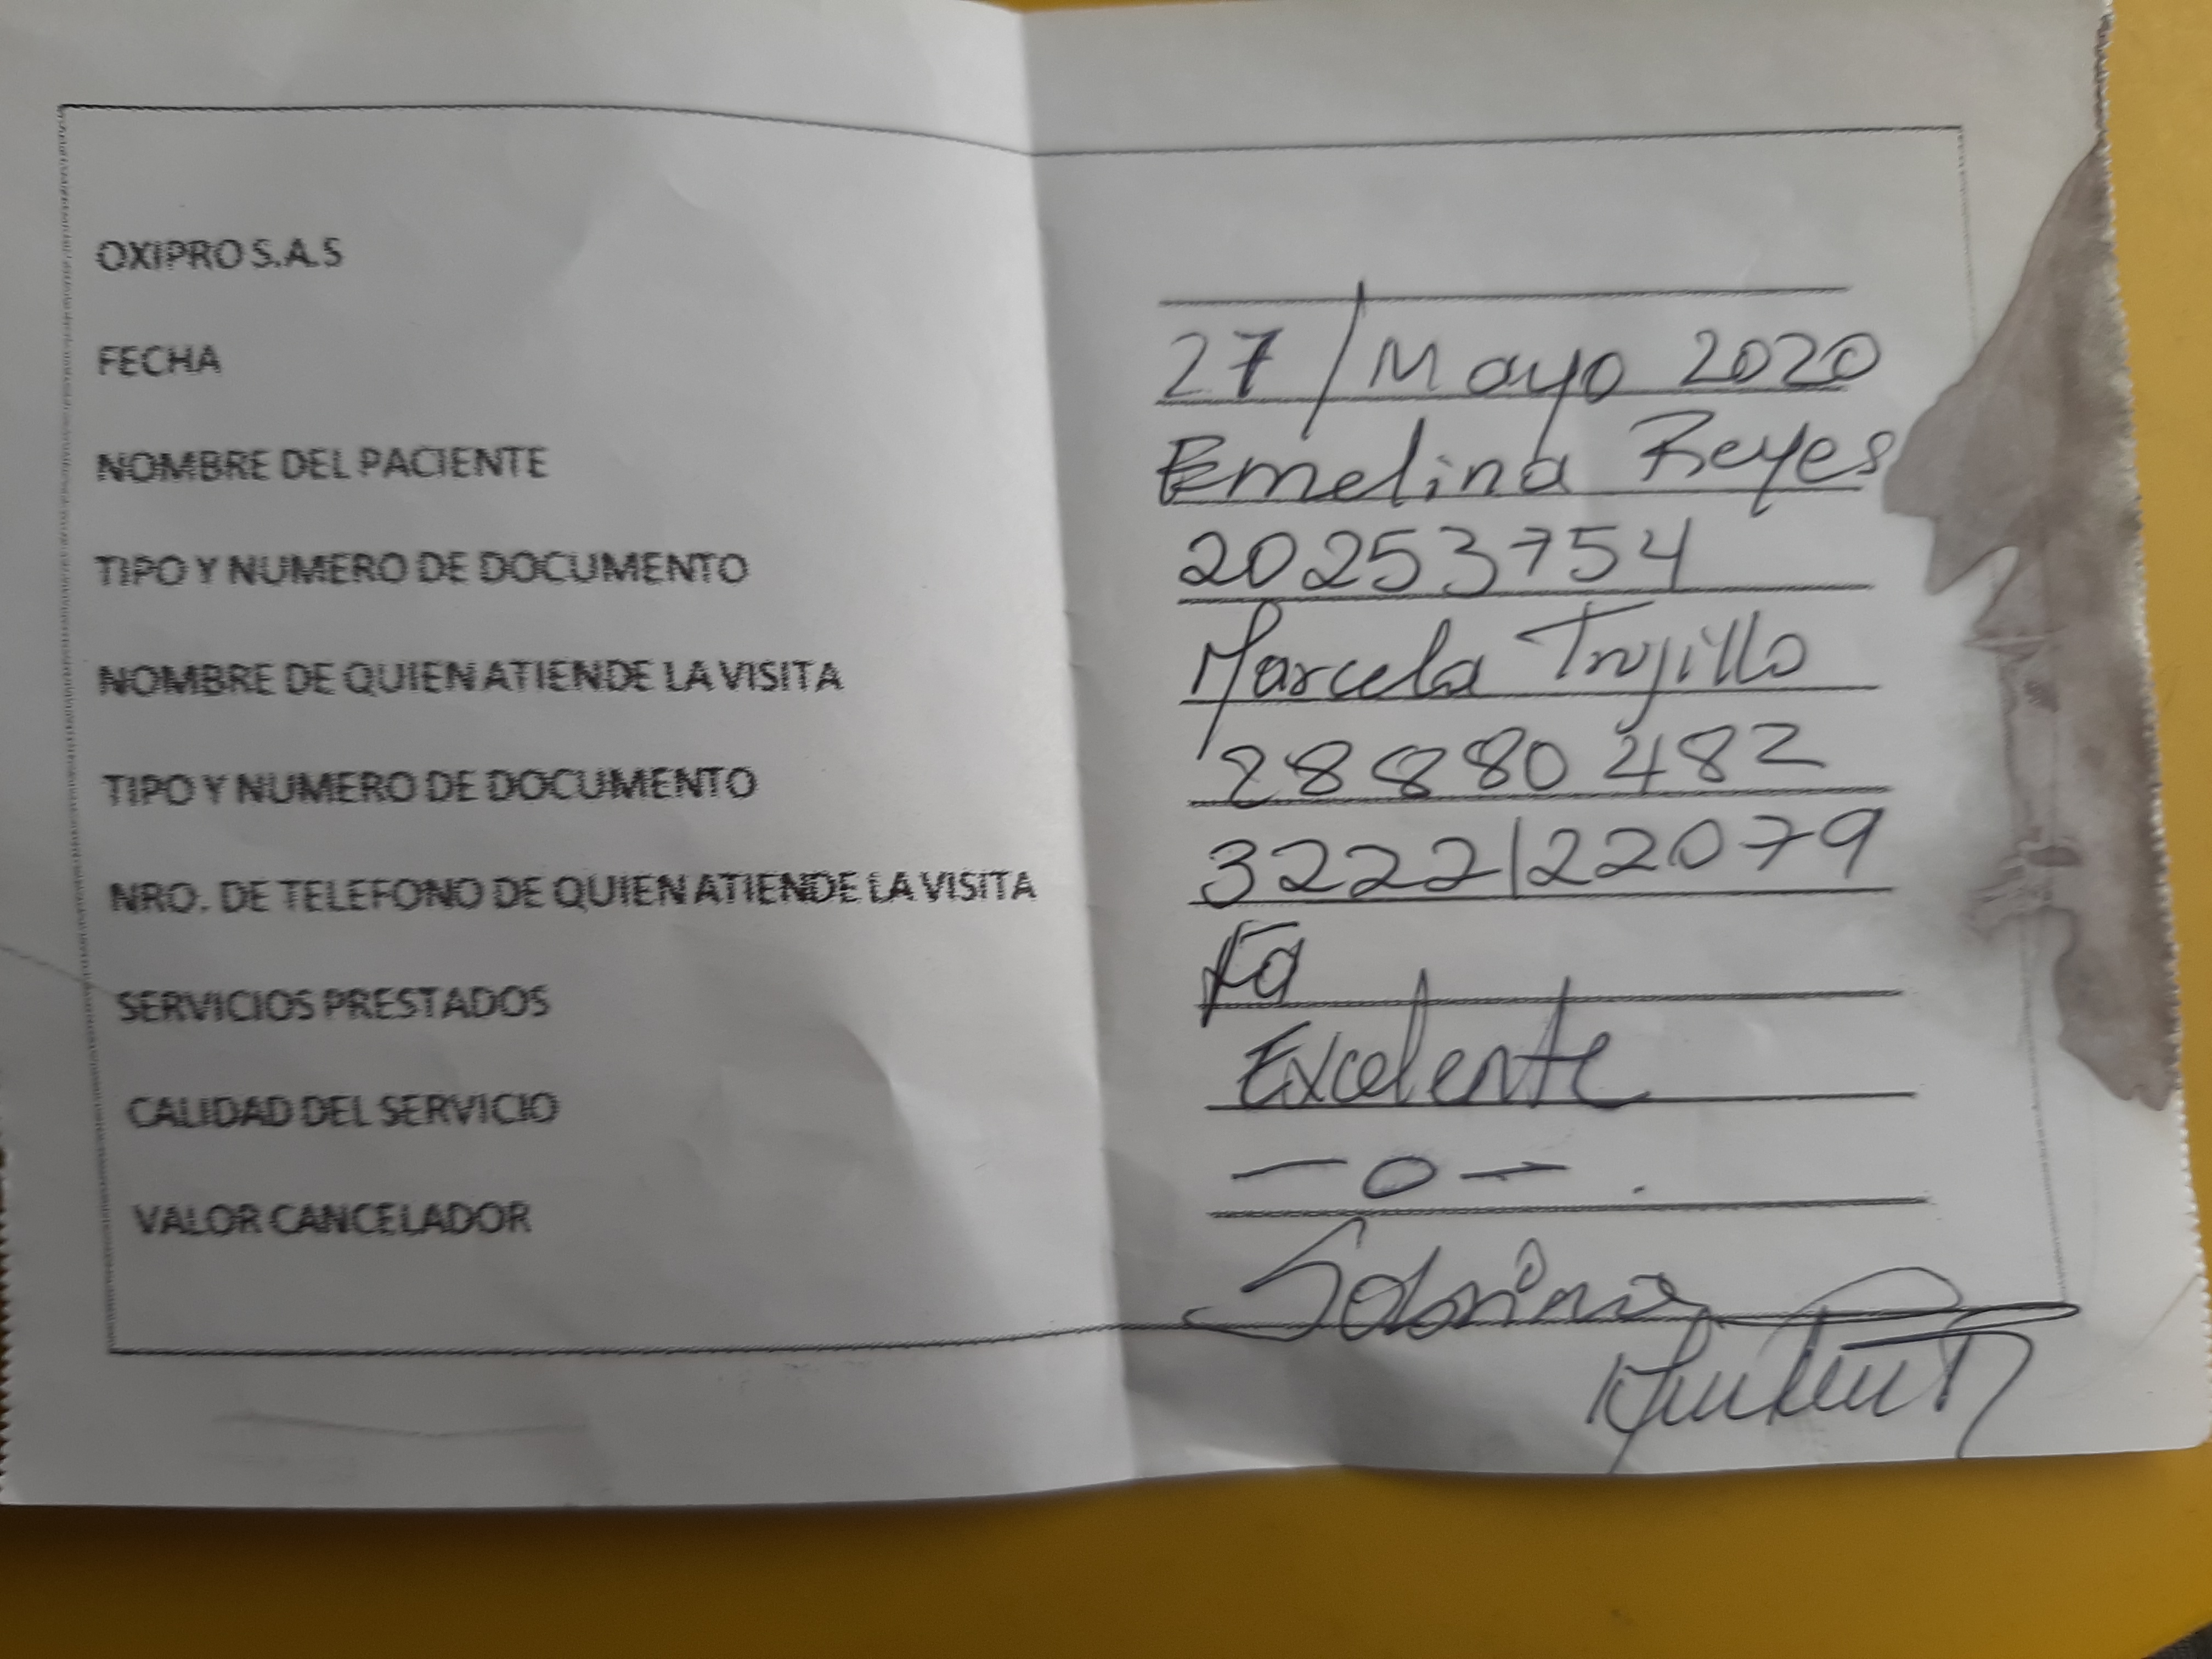 OXIPRO S.A.S
FECHA 27/Mayo 2020
NOMBRE DEL PACIENTE Emelina Reyes
TIPO Y NUMERO DE DOCUMENTO 20253754
NOMBRE DE QUIEN ATIENDE LA VISITA Marcela Trujillo
TIPO Y NUMERO DE DOCUMENTO 28880482
NRO. DE TELEFONO DE QUIEN ATIENDE LA VISITA 3222122079
SERVICIOS PRESTADOS
CALIDAD DEL SERVICIO Excelente
VALOR CANCELADOR — 0 — .